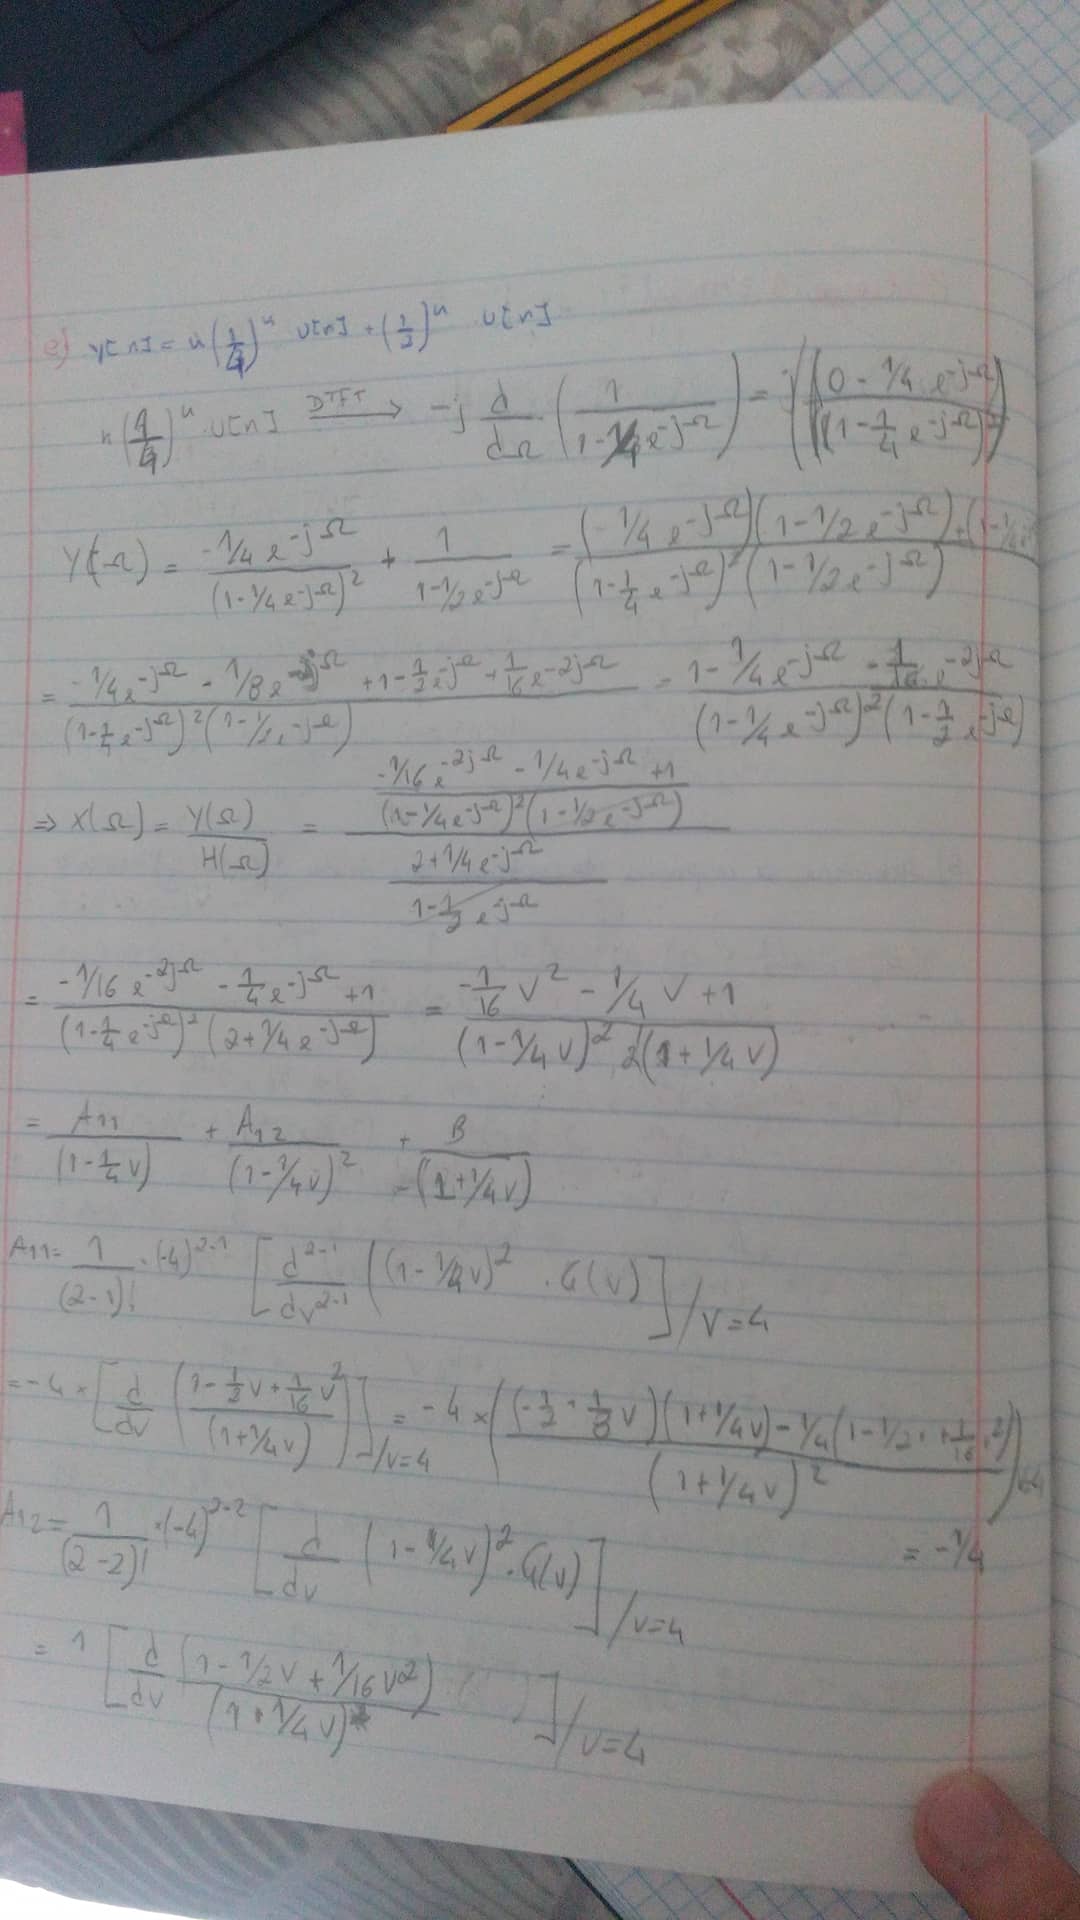 e) y[n] = n(1/4)^n u[n] + (1/2)^n u[n]
n(1/4)^n u[n] DTFT → -j d/dΩ (1/(1-1/4 e^-jΩ)) = ((0 - 1/4 e^-jΩ)/((1-1/4 e^-jΩ)^2))
Y(Ω) = (-1/4 e^-jΩ)/((1-1/4 e^-jΩ)^2) + 1/(1-1/2 e^-jΩ) = ((-1/4 e^-jΩ)(1-1/2 e^-jΩ) + (1-1/4 /((1-1/4 e^-jΩ)^2 (1-1/2 e^-jΩ))
= (-1/4 e^-jΩ - 1/8 e^-2jΩ + 1 - 1/2 e^-jΩ + 1/16 e^-2jΩ)/((1-1/4 e^-jΩ)^2 (1-1/2 e^-jΩ)) = (1 - 1/4 e^-jΩ - 1/16 e^-2jΩ)/((1-1/4 e^-jΩ)^2 (1-1/2 e^-jΩ))
⇒ X(Ω) = Y(Ω)/H(Ω) = ((-1/16 e^-2jΩ - 1/4 e^-jΩ + 1)/((1-1/4 e^-jΩ)^2 (1-1/2 e^-jΩ)))/((2+1/4 e^-jΩ)/(1-1/2 e^-jΩ))
= (-1/16 e^-2jΩ - 1/4 e^-jΩ + 1)/((1-1/4 e^-jΩ)^2 (2+1/4 e^-jΩ)) = (-1/16 v^2 - 1/4 v + 1)/((1-1/4 v)^2 2(1+1/4 v))
= A11/(1-1/4 v) + A12/(1-1/4 v)^2 + B/(1+1/4 v)
A11 = 1/(2-1)! · (-4)^2-1 [d^2-1/dv^2-1 ((1-1/4 v)^2 · G(v)]/v=4
= -4 × [d/dv ((1-1/2 v + 1/16 v^2)/(1+1/4 v))]/v=4 = -4 × (((-1/2 + 1/8 v)(1+1/4 v) - 1/4(1-1/2 v + 1/16 v^2))/(1+1/4 v)^2) v=4
= -1/4
A12 = 1/(2-2)! · (-4)^2-2 [d/dv (1-1/4 v)^2 · G(v)]/v=4
= 1 [d/dv (1-1/2 v + 1/16 v^2)/(1+1/4 v)]/v=4